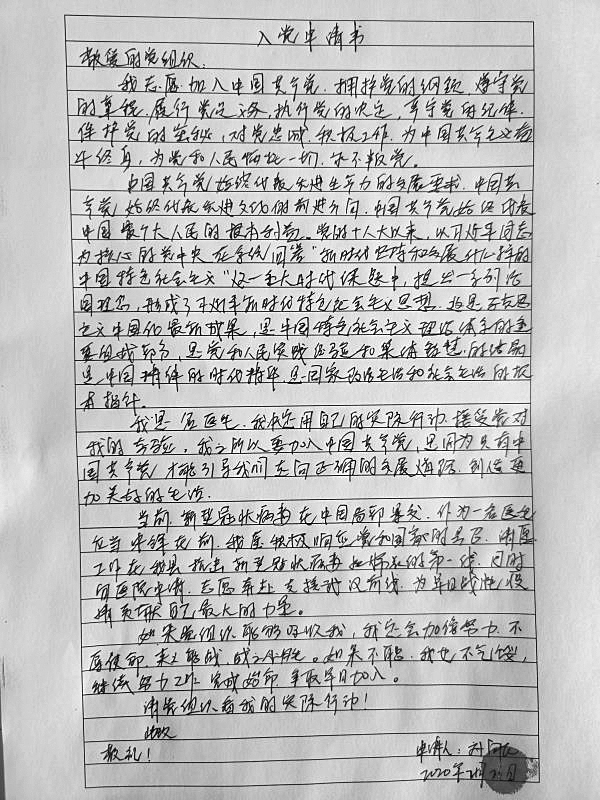 入党申请书
敬爱的党组织:
我志愿加入中国共产党,拥护党的纲领,遵守党
的章程,履行党员义务,执行党的决定,严守党的纪律,
保守党的秘密,对党忠诚,积极工作,为中国共产主义奋
斗终身,为党和人民牺牲一切,永不叛党。
中国共产党始终代表先进生产力的发展要求,中国共
产党始终代表先进文化的前进方向,中国共产党始终代表
中国最广大人民的根本利益。党的十八大以来,以习近平同志
为核心的党中央在系统回答“新时代坚持和发展什么样的
中国特色社会主义”这一重大时代课题中,提出一系列治
国理念,形成了习近平新时代特色社会主义思想,这是马克思
主义中国化最新成果,是中国特色社会主义理论体系的重
要组成部分,是党和人民实践经验和集体智慧的结晶
是中国精神的时代精华,是国家政治生活和社会生活的根
本指针。
我是一名医生,我决定用自己的实际行动,接受党对
我的考验,我之所以要加入中国共产党,是因为只有中
国共产党才能引导我们走向正确的发展道路,创造更
加美好的生活。
当前,新型冠状病毒在中国局部暴发,作为一名医生
应当冲锋在前,我应积极响应党和国家的号召,请愿
工作在我县抗击新型冠状病毒的第一线,同时
向医院申请,志愿奔赴支援武汉前线,为早日战胜疫
情贡献自己最大的力量。
如果党组织能够吸收我,我定会加倍努力,不
辱使命,来之能战,战之必胜。如果不能,我也不气馁,
继续努力工作,完成始命,争取早日加入。
请党组织看我的实际行动!
此致
敬礼!
申请人:
2020年2月